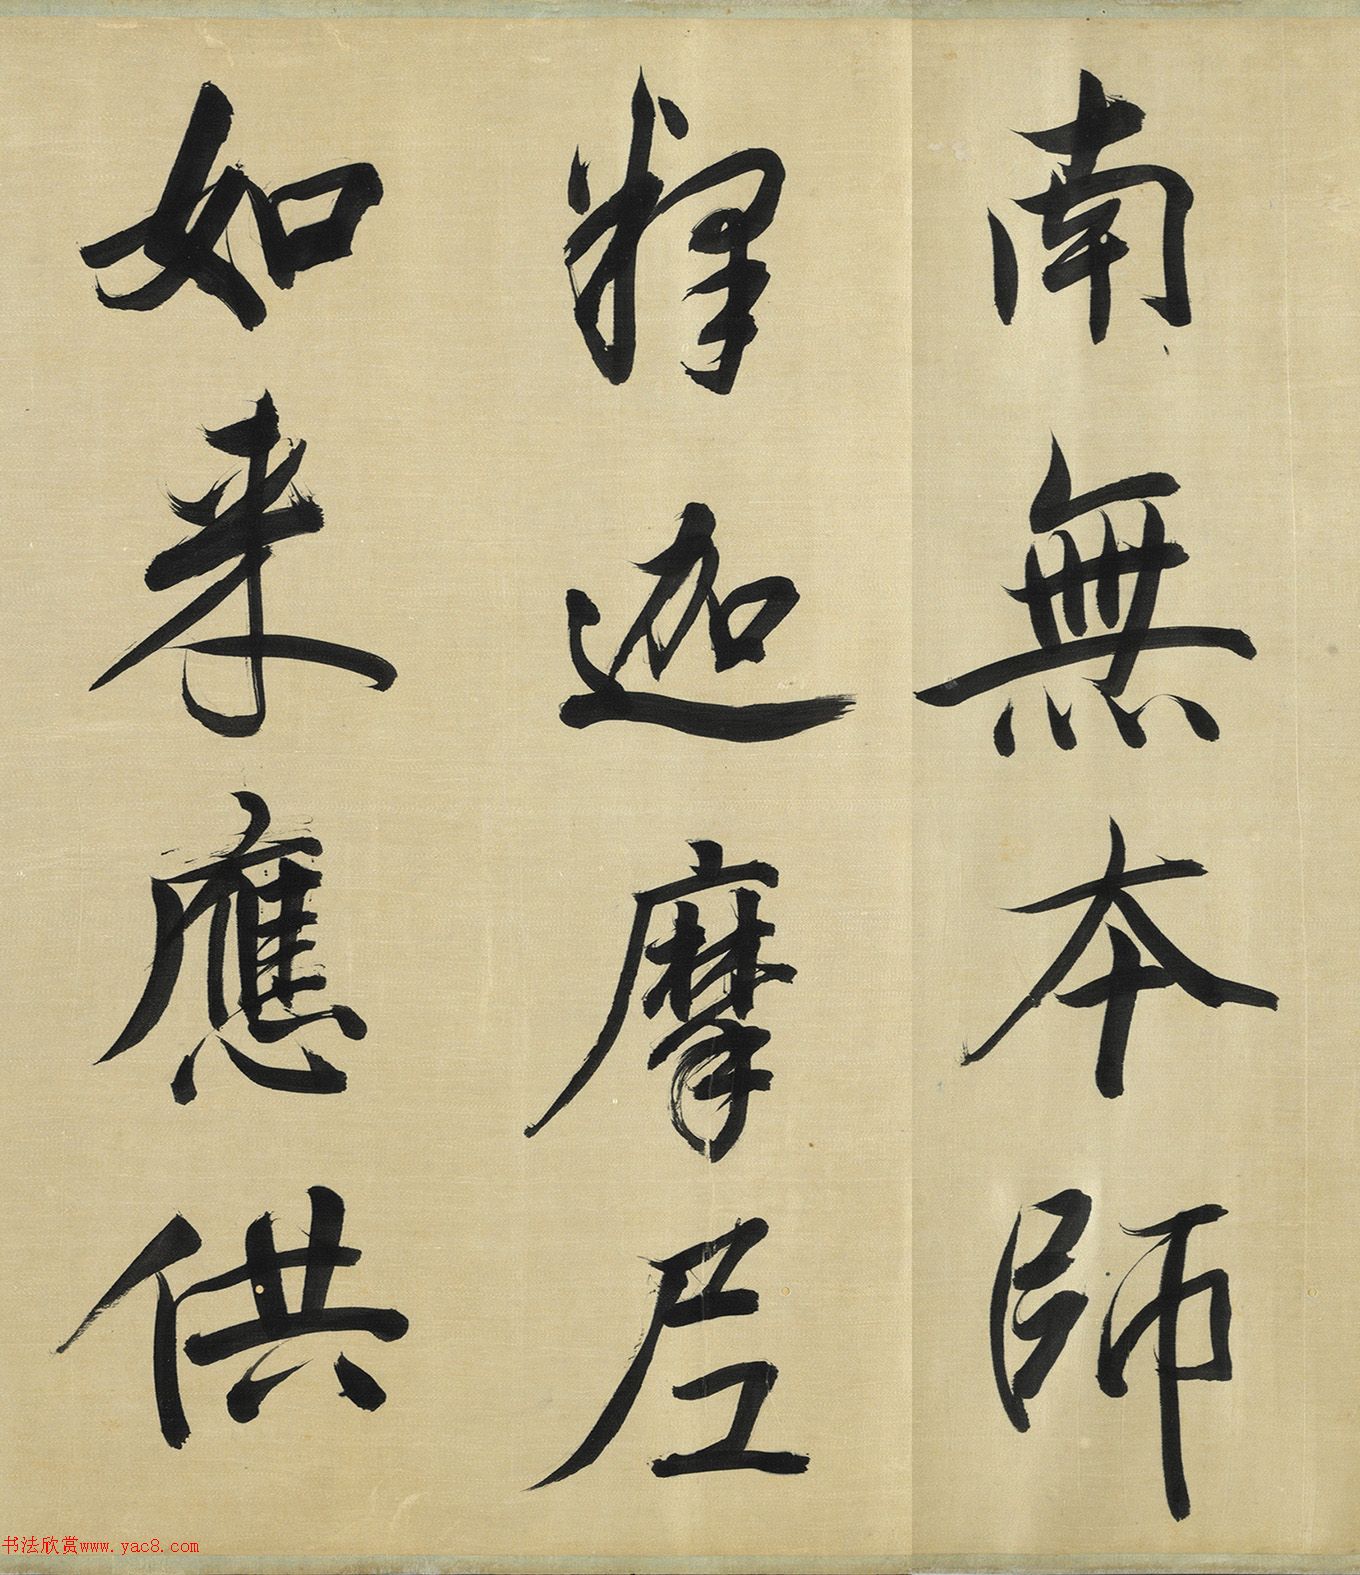 南無本師
釋迦摩尼
如来應供
书法欣赏www.yac8.com